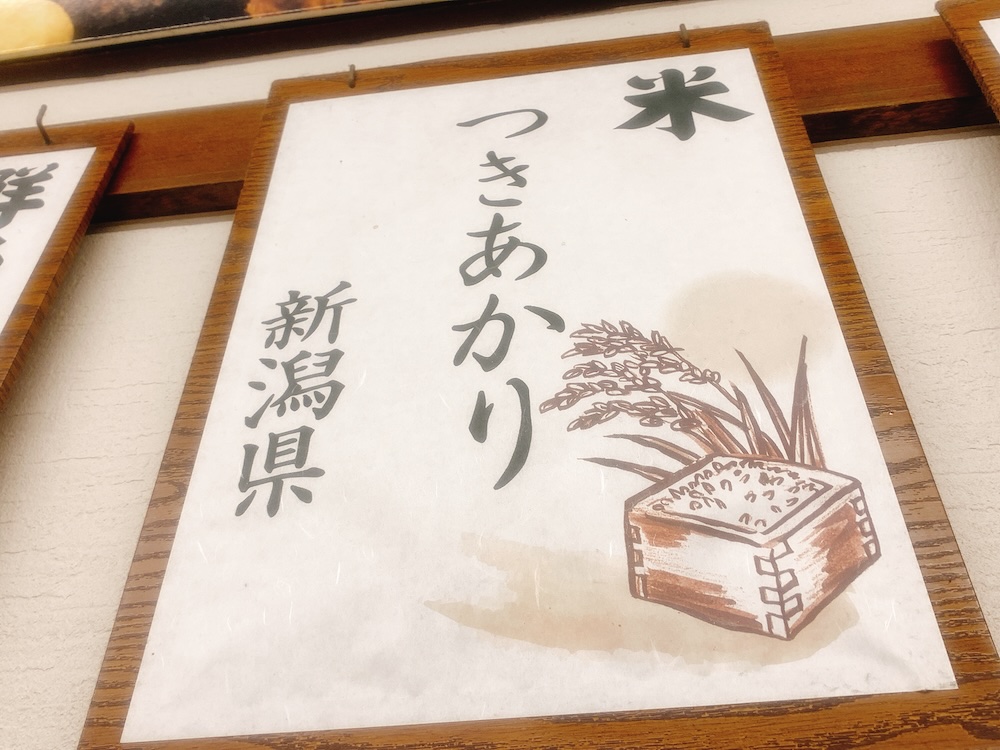 米
つきあかり
新潟県
鮮